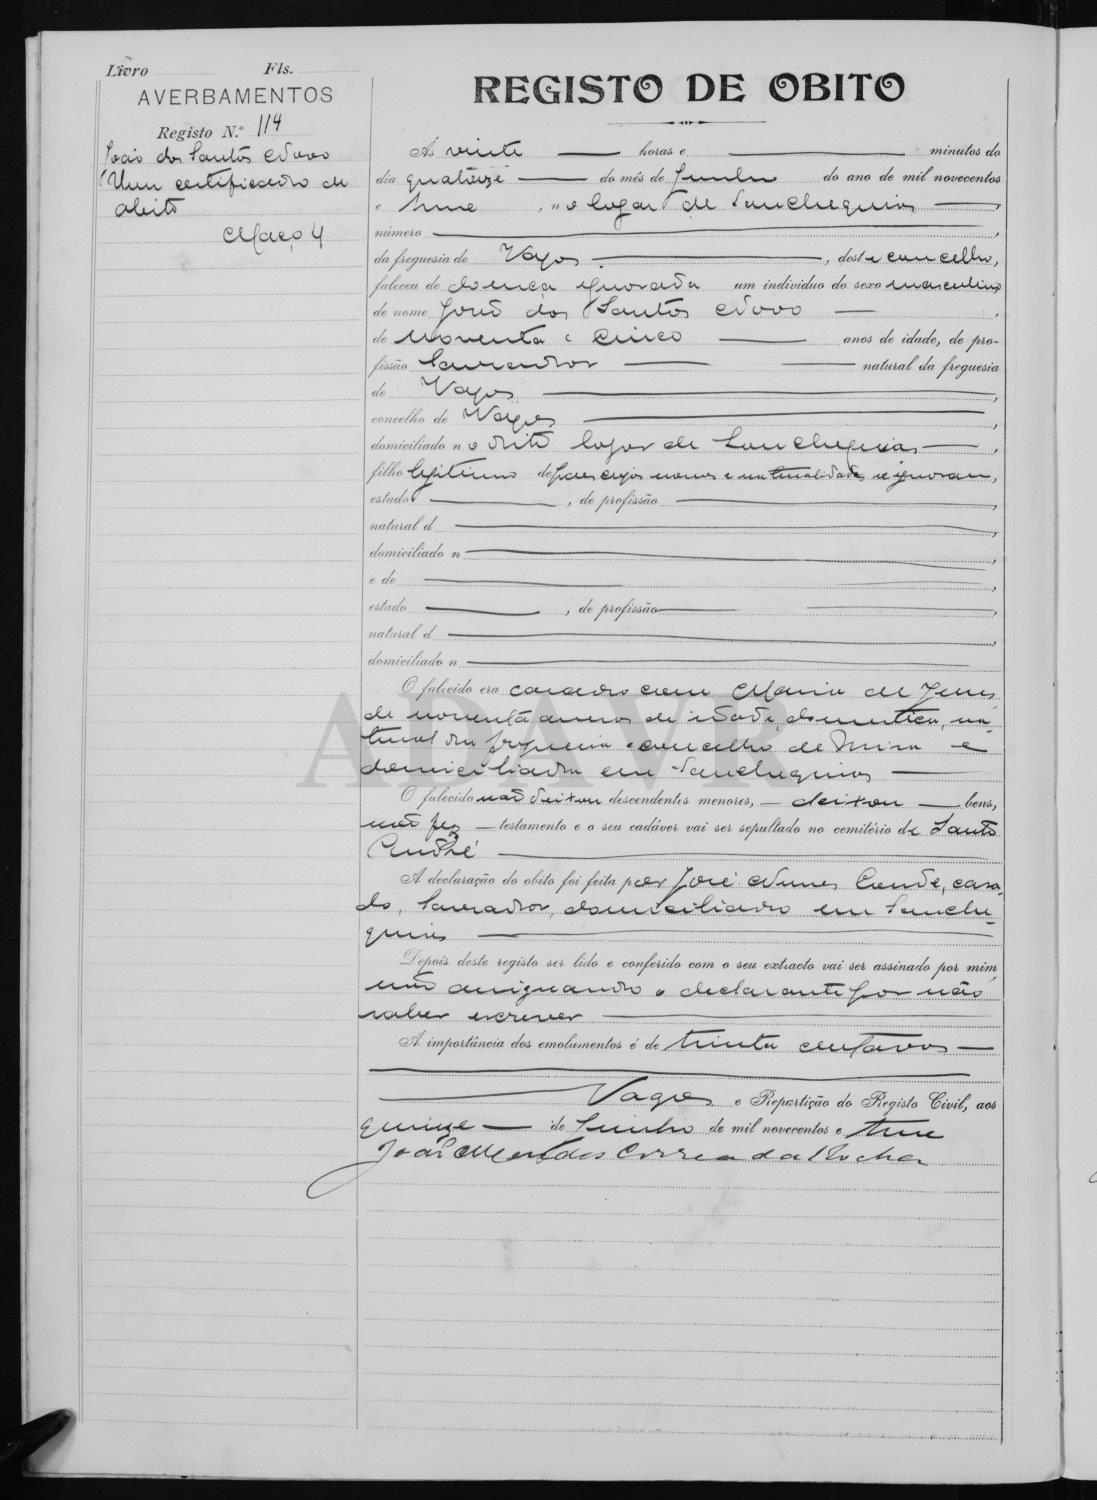 Livro Fls.
AVERBAMENTOS
Registo N.º 114
João dos Santos Novo
Um certificado de
obito
Maço 4
REGISTO DE OBITO
Ás vinte horas e minutos do
dia quatorze do mês de Junho do ano de mil novecentos
e treze, no logar de Sanchequias,
número
da freguesia de Vagos, deste concelho,
faleceu de doença ignorada um individuo do sexo masculino
de nome João dos Santos Novo
de noventa e cinco anos de idade, de pro-
fissão lavrador natural da freguesia
de Vagos,
concelho de Vagos,
domiciliado no dito logar de Sanchequias,
filho legitimo de paes cujos nomes e naturalidades se ignoram,
estado, de profissão,
natural d,
domiciliado n,
e de,
estado, de profissão,
natural d,
domiciliado n
O falecido era casado com Maria de Jesus
de noventa annos de idade, domestica, na-
tural da freguesia e concelho de Mira e
domiciliada em Sanchequias
O falecido não deixou descendentes menores, deixou bens,
não fez testamento e o seu cadáver vai ser sepultado no cemitério de Santo
André
A declaração do obito foi feita por José Nunes Conde, casa-
do, lavrador, domiciliado em Sanche-
quias
Depois deste registo ser lido e conferido com o seu extracto vai ser assinado por mim,
não assignando o declarante por não
saber escrever
A importância dos emolumentos é de trinta centavos
Vagos e Repartição do Registo Civil, aos
quinze de Junho de mil novecentos e treze
João Mendes Correa da Rocha
ADAVR